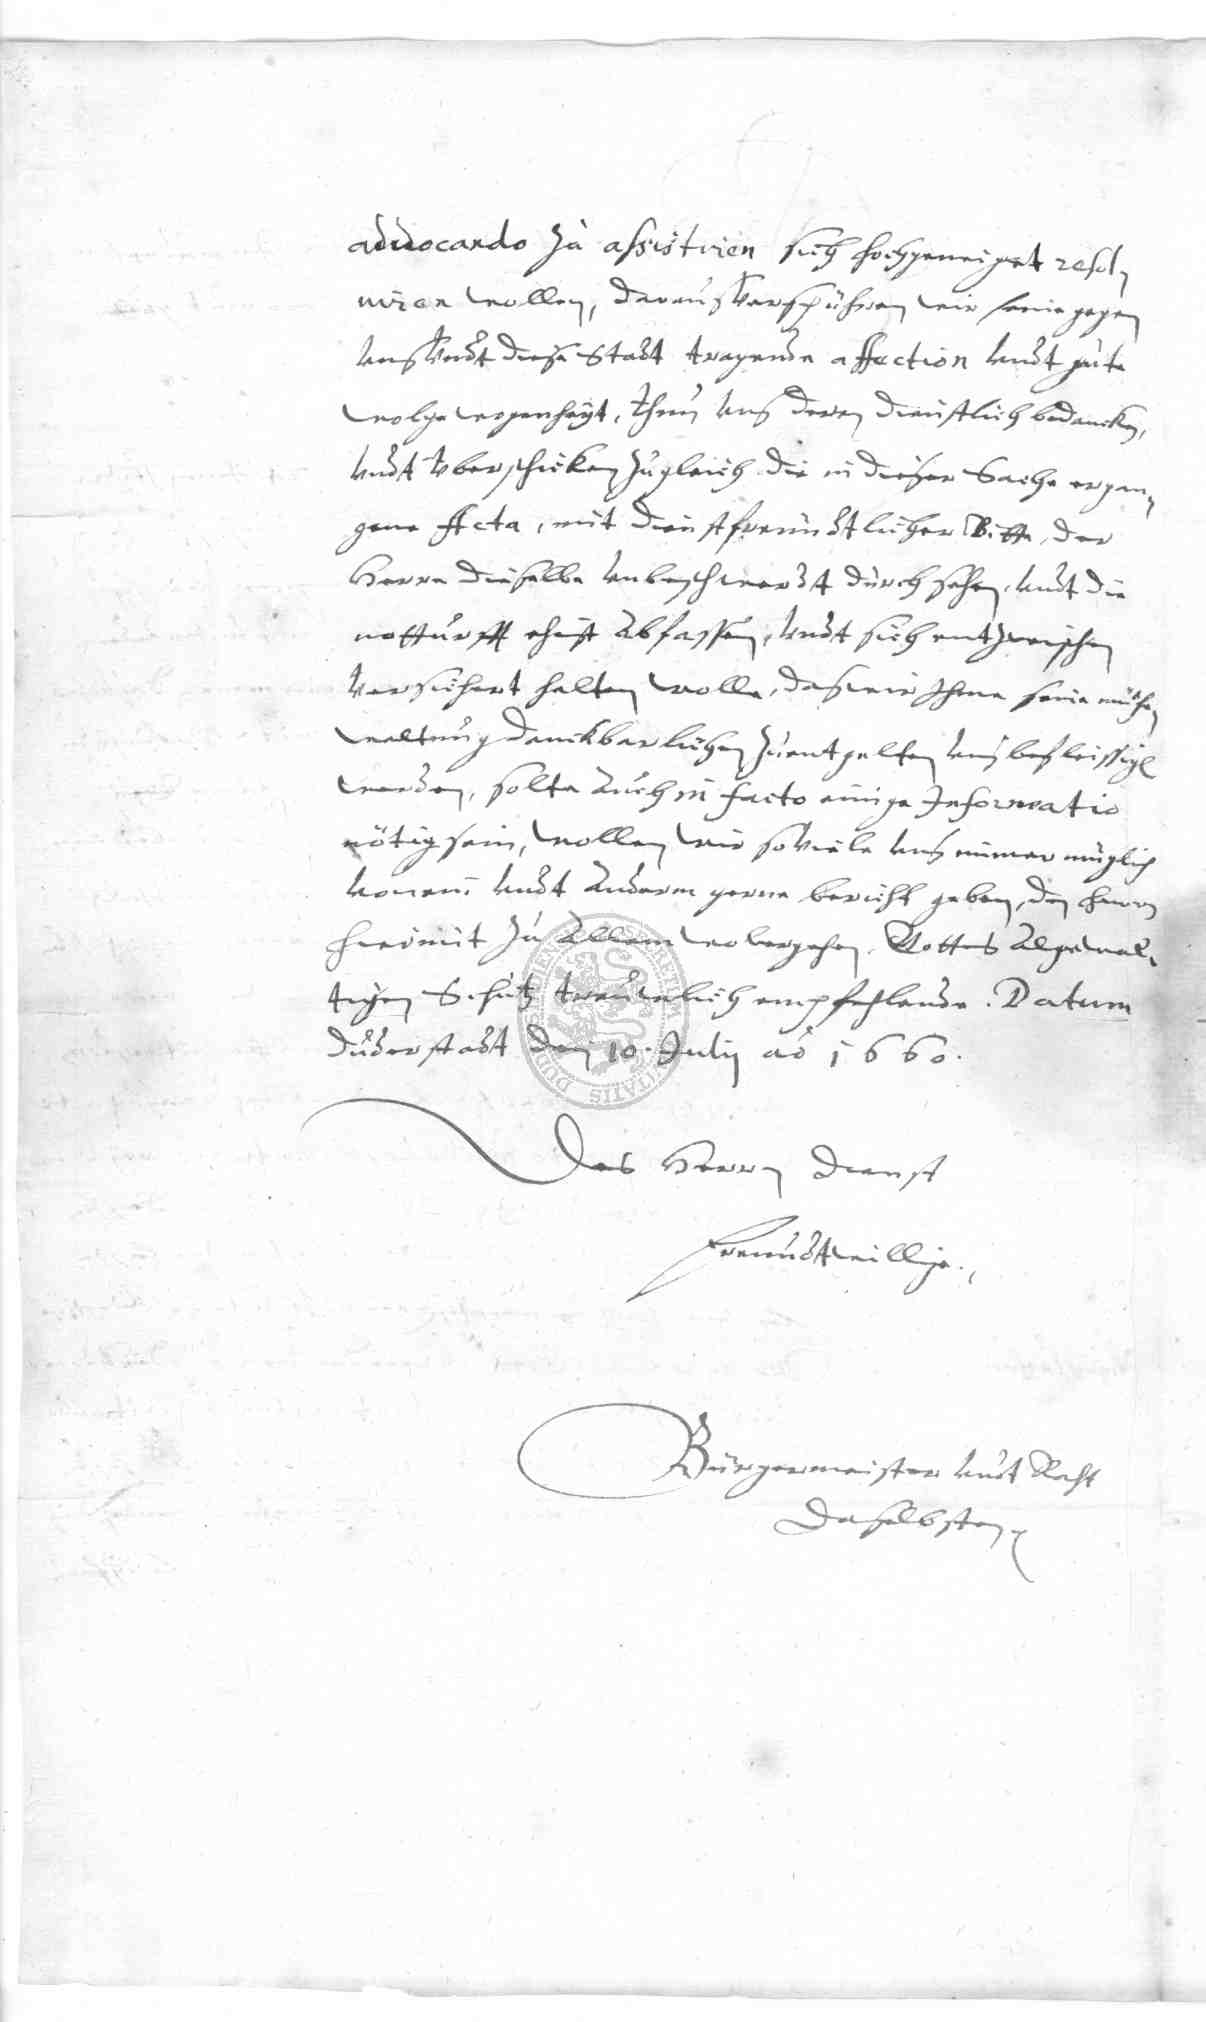 advocando zu assistiren sich hochgeneiget resol,
uiren wollen, daraus verspühren wir seine gegen
uns undt diese Stadt tragende affection undt gute
wolgewogenheyt, thun uns deren dienstlich bedancken,
undt uberschicken zugleich die in dieser Sache ergan,
gene Acta, mit dienstfreundtlicher Bitte, der
Herre dieselbe unbeschwerdt durchsehen, undt die
notturfft ehist abfassen, undt sich entzwischen
versichert halten wolle, das wir Ihme seine mühe,
waltung danckbarlichen zuentgelten uns befleissigen
werden, solte auch in facto einige Informatio
nötig sein, wollen wir so viele uns immer müglich
undt anderm gerne bericht geben, den herrn
hiermit zu allem wolergehen, Gottes Algewal,
tigen Schutz treuwlich empfehlende. Datum
Duderstadt den 10. Julij ao 1660.
Des Herrn dienst
freundtwillige.
Bürgermeister undt Raht
daselbsten